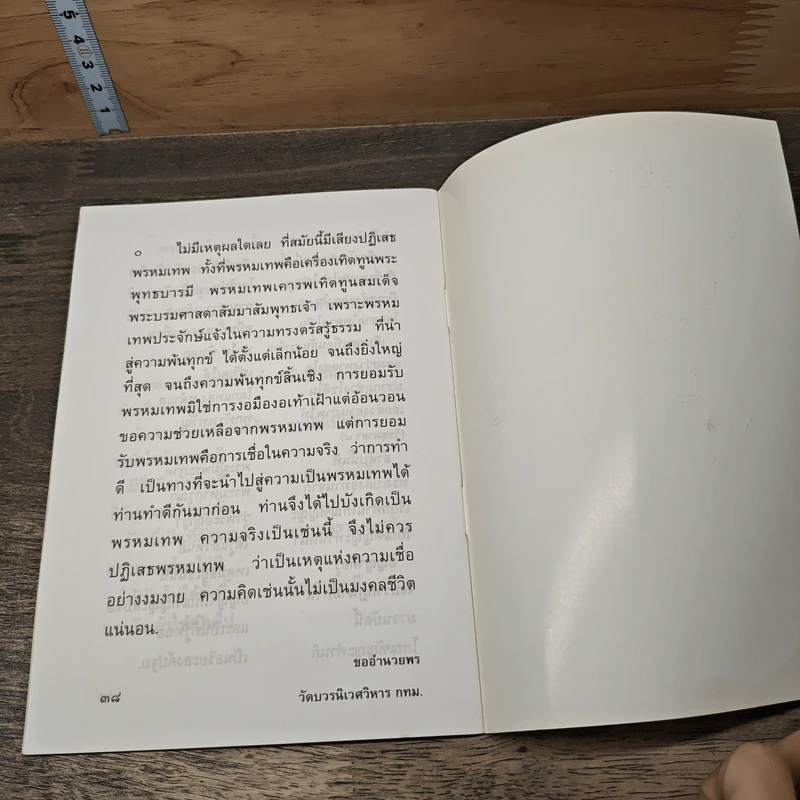 5
4
3
2
1
๐ ไม่มีเหตุผลใดเลย ที่สมัยนี้มีเสียงปฏิเสธ
พรหมเทพ ทั้งที่พรหมเทพคือเครื่องเทิดทูนพระ
พุทธบารมี พรหมเทพเคารพเทิดทูนสมเด็จ
พระบรมศาสดาสัมมาสัมพุทธเจ้า เพราะพรหม
เทพประจักษ์แจ้งในความทรงตรัสรู้ธรรม ที่นำ
สู่ความพ้นทุกข์ ได้ตั้งแต่เล็กน้อย จนถึงยิ่งใหญ่
ที่สุด จนถึงความพ้นทุกข์สิ้นเชิง การยอมรับ
พรหมเทพมิใช่การงอมืองอเท้าเฝ้าแต่อ้อนวอน
ขอความช่วยเหลือจากพรหมเทพ แต่การยอม
รับพรหมเทพคือการเชื่อในความจริง ว่าการทำ
ดี เป็นทางที่จะนำไปสู่ความเป็นพรหมเทพได้
ท่านทำดีกันมาก่อน ท่านจึงได้ไปบังเกิดเป็น
พรหมเทพ ความจริงเป็นเช่นนี้ จึงไม่ควร
ปฏิเสธพรหมเทพ ว่าเป็นเหตุแห่งความเชื่อ
อย่างงมงาย ความคิดเช่นนั้นไม่เป็นมงคลชีวิต
แน่นอน.
ขออำนวยพร
๓๘ วัดบวรนิเวศวิหาร กทม.